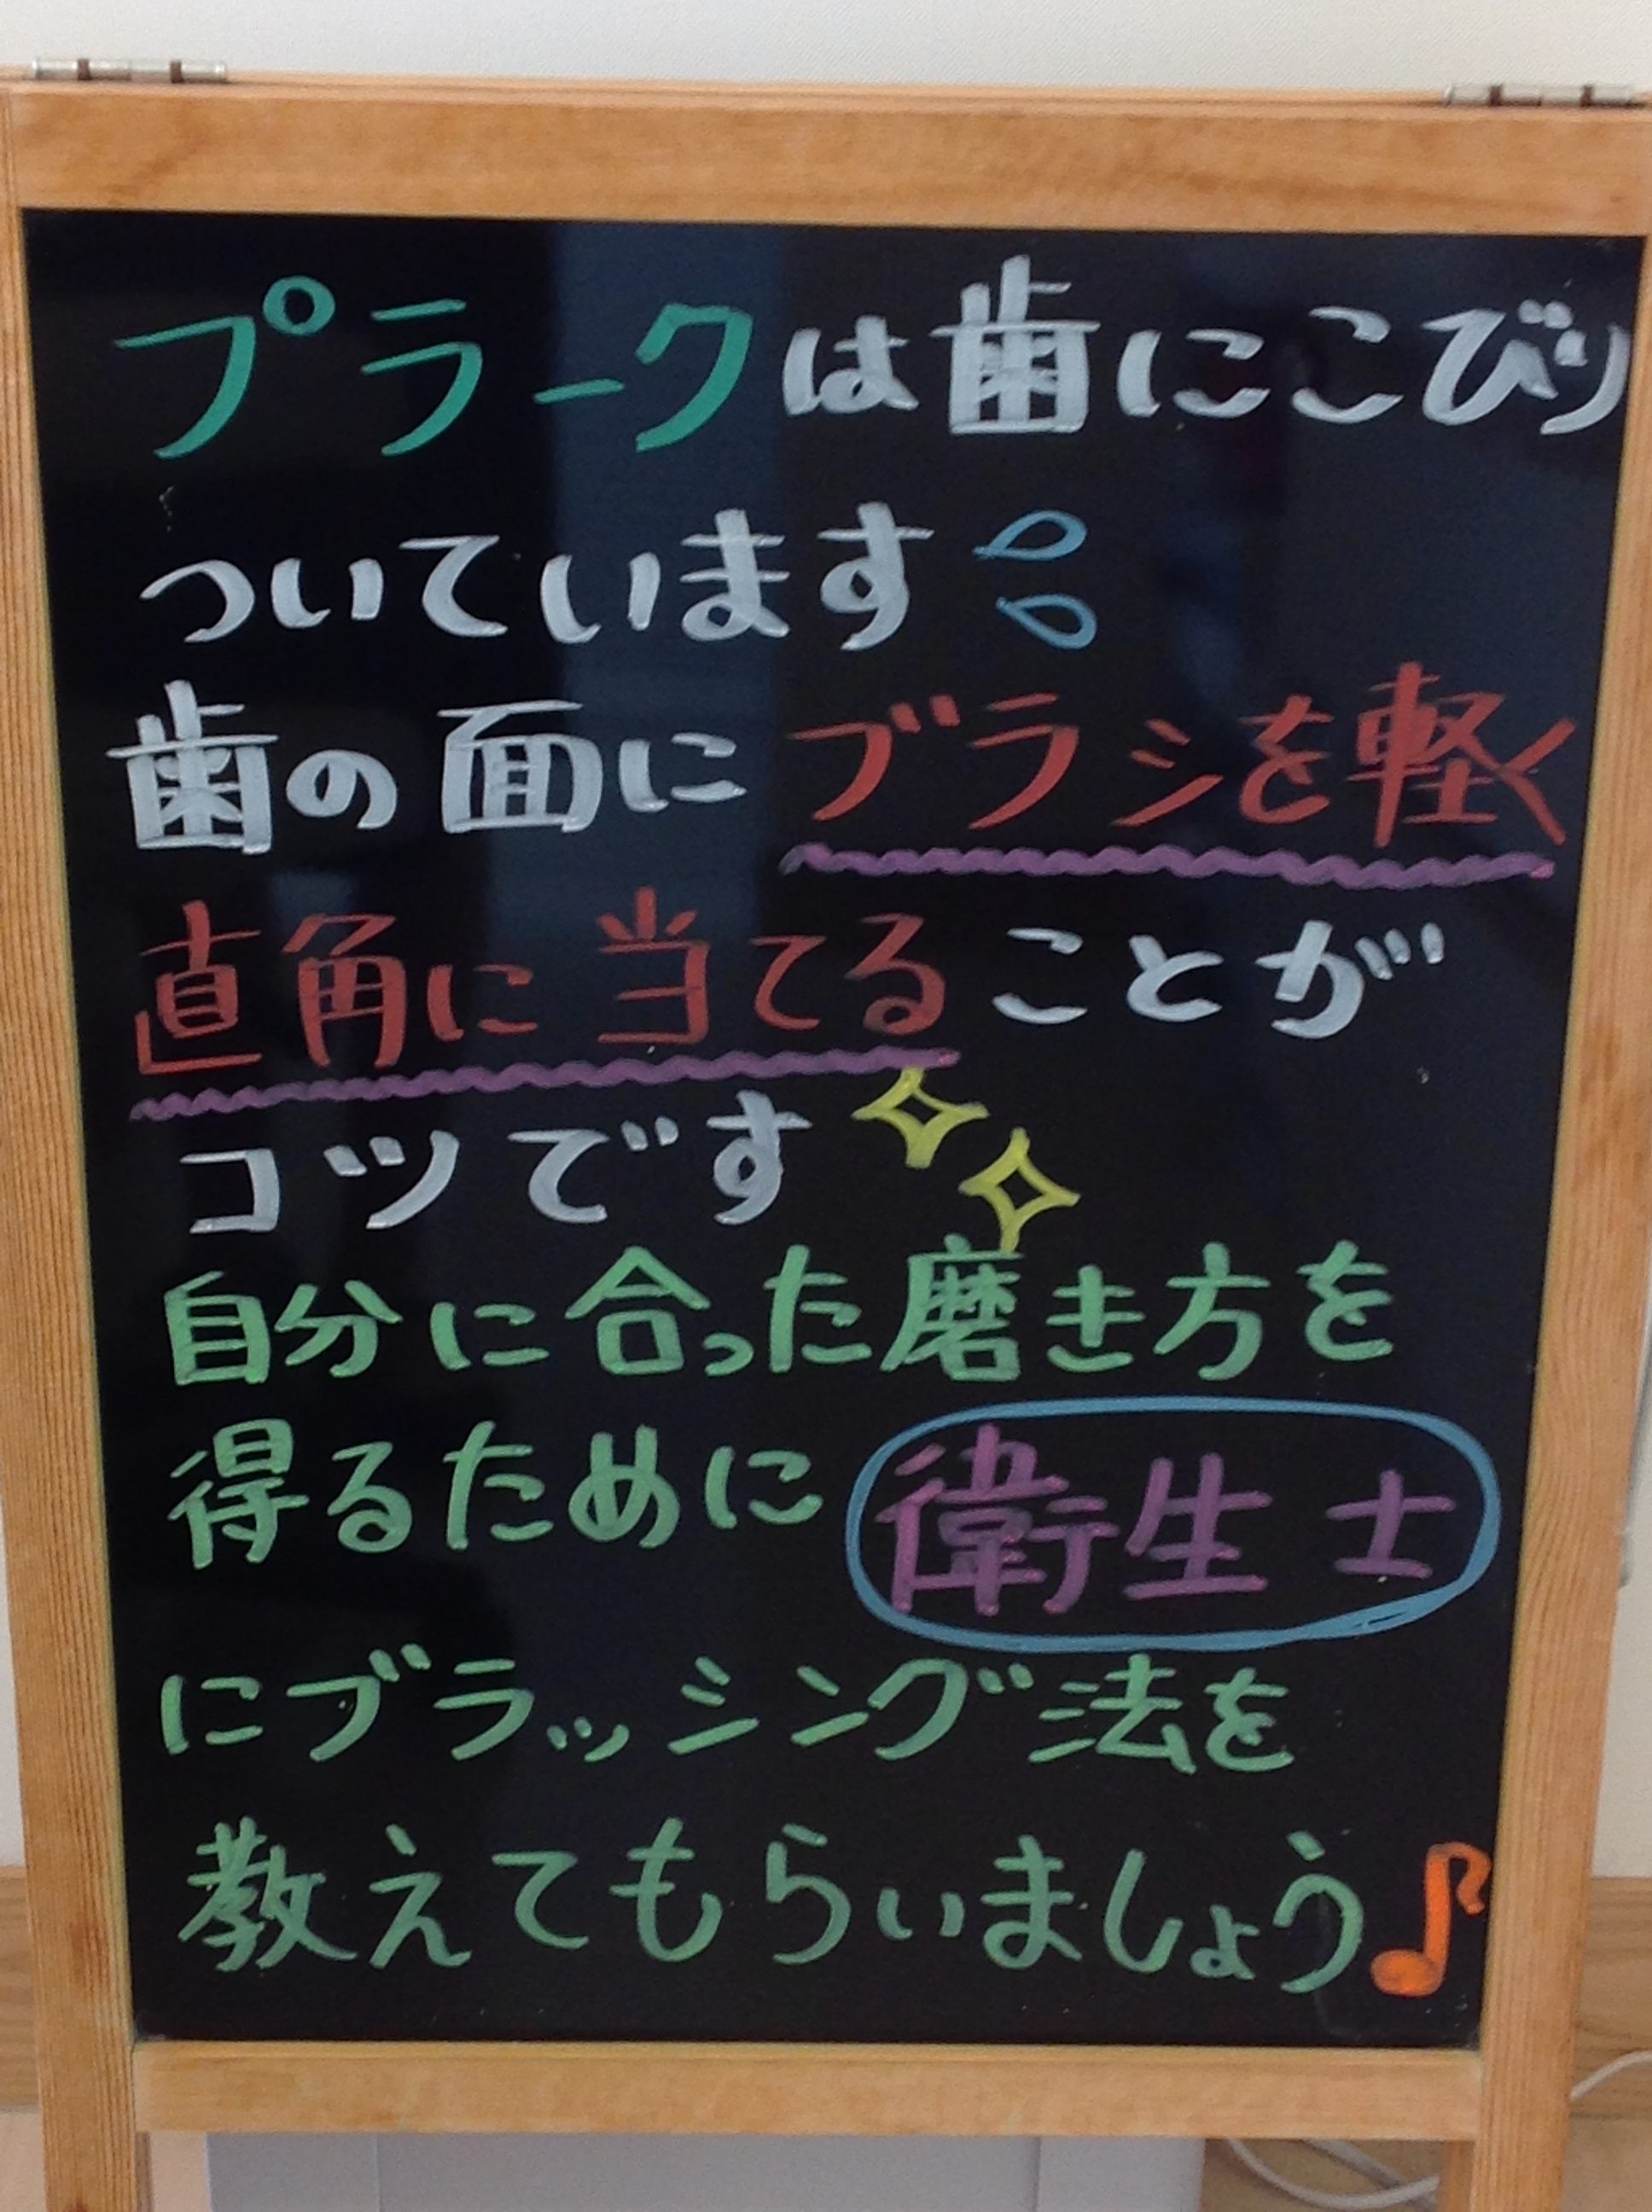 プラークは歯にこびり
ついています
歯の面にブラシを軽く
直角に当てることが
コツです
自分に合った磨き方を
得るために衛生士
にブラッシング法を
教えてもらいましょう♪